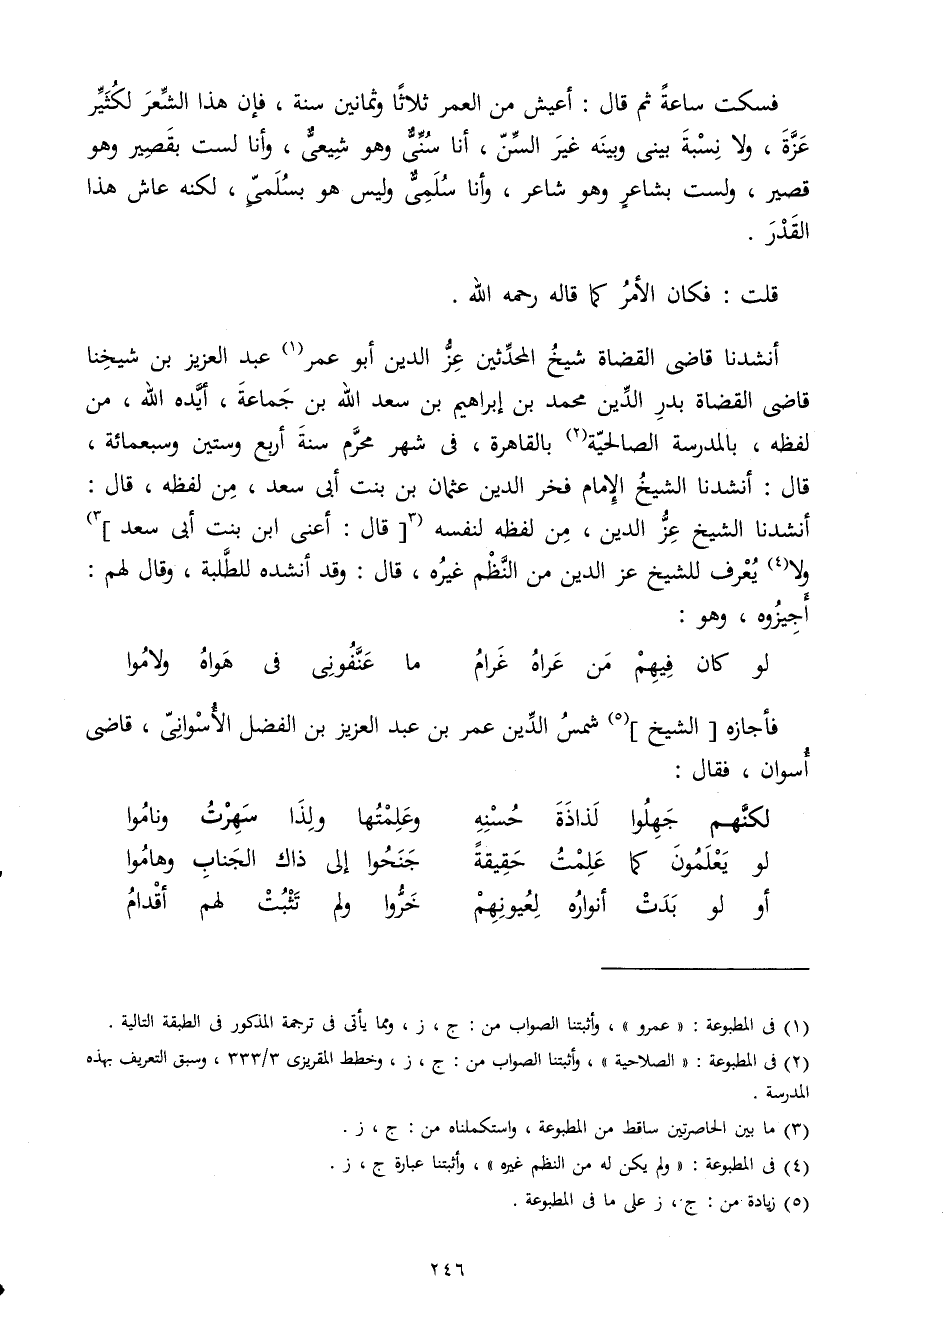 فسكت ساعةً ثم قال : أعيش من العمر ثلاثًا وثمانين سنة ، فإن هذا الشِّعرَ لكُثَيِّر
عَزَّةَ ، ولا نِسْبةَ بينى وبينه غيرَ السِّنّ ، أنا سُنِّىٌّ وهو شِيعىٌّ ، وأنا لست بقَصِير وهو
قصير ، ولست بشاعرٍ وهو شاعر ، وأنا سُلَمِىٌّ وليس هو بسُلَمىٍّ ، لكنه عاش هذا
القَدْرَ .
قلت : فكان الأمرُ كما قاله رحمه الله .
أنشدنا قاضى القضاة شيخُ المحدِّثين عِزُّ الدين أبو عمر(١) عبد العزيز بن شيخِنا
قاضى القضاة بدرِ الدِّين محمد بن إبراهيم بن سعد الله بن جَماعةَ ، أيَّده الله ، من
لفظه ، بالمدرسة الصالحيّة(٢) بالقاهرة ، فى شهر محرَّم سنةَ أربع وستين وسبعمائة ،
قال : أنشدنا الشيخُ الإمام فخر الدين عثمان بن بنت أبى سعد ، مِن لفظه ، قال :
أنشدنا الشيخ عِزُّ الدين ، مِن لفظه لنفسه (٣[ قال : أعنى ابن بنت أبى سعد ]٣)
ولا(٤) يُعْرف للشيخ عز الدين من النَّظْم غيرُه ، قال : وقد أنشده للطَّلبة ، وقال لهم :
أَجِيزُوه ، وهو :
لو كان فِيهِمْ مَن عَراهُ غَرامُ ما عَنَّفُونِى فى هَواهُ ولامُوا
فأجازه [ الشيخ ](٥) شمسُ الدِّين عمر بن عبد العزيز بن الفضل الأُسْوانِىّ ، قاضى
أُسوان ، فقال :
لكنَّهم جَهِلُوا لَذاذَةَ حُسْنِهِ وعَلِمْتُها ولِذَا سَهِرْتُ ونامُوا
لو يَعْلَمُونَ كما عَلِمْتُ حَقِيقةً جَنَحُوا إلى ذاك الجَنابِ وهامُوا
أو لو بَدَتْ أنوارُه لِعُيونِهِمْ خَرُّوا ولم تَثْبُتْ لهم أقْدامُ
(١) فى المطبوعة : « عمرو » ، وأثبتنا الصواب من : ج ، ز ، ومما يأتى فى ترجمة المذكور فى الطبقة التالية .
(٢) فى المطبوعة : « الصلاحية » ، وأثبتنا الصواب من : ج ، ز ، وخطط المقريزى ٣٣٣/٣ ، وسبق التعريف بهذه
المدرسة .
(٣) ما بين الحاصرتين ساقط من المطبوعة ، واستكملناه من : ج ، ز .
(٤) فى المطبوعة : « ولم يكن له من النظم غيره » ، وأثبتنا عبارة ج ، ز .
(٥) زيادة من : ج ، ز على ما فى المطبوعة .
٢٤٦